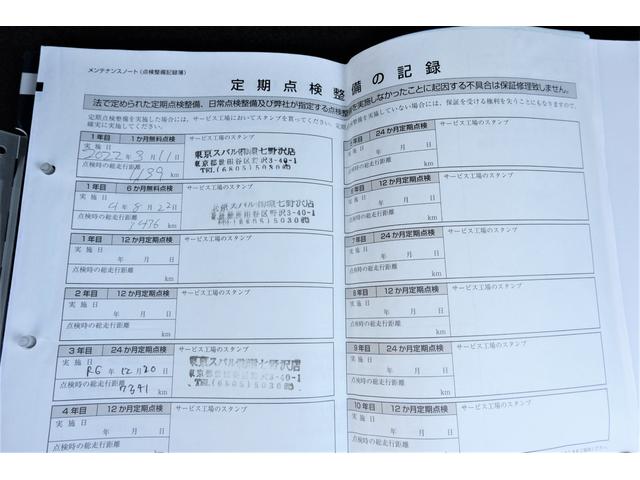 メンテナンスノート(点検整備記録簿)
定期点検整備の記録
法で定められた定期点検整備、日常点検整備及び弊社が指定する点検整備を実施しなかったことに起因する不具合は保証修理致しません。
定期点検整備を実施した場合には、サービス工場においてスタンプを貰ってください。定期
を実施していない場合には、保証を受ける権利を失うこともなりますので、
確実に実施してください。
1年目 1か月無料点検 サービス工場のスタンプ
実施日
2022年3月11日
点検時の総走行距離
1139 km
東京スバル
七野沢店
東京都世田谷区野沢3-40-1
TEL(6805)5030
1年目 6か月無料点検 サービス工場のスタンプ
実施日
4年8月22日
点検時の総走行距離
km
七野沢店
野沢3-40-1
5030
1年目 12か月定期点検 サービス工場のスタンプ
実施日
年 月 日
点検時の総走行距離
km
2年目 12か月定期点検 サービス工場のスタンプ
実施日
年 月 日
点検時の総走行距離
km
3年目 24か月定期点検 サービス工場のスタンプ
実施日
R6年12月20日
点検時の総走行距離
7341 km
東京スバル
七野沢店
東京都世田谷区野沢3-40-1
TEL(6805)5030
4年目 12か月定期点検 サービス工場のスタンプ
実施日
年 月 日
点検時の総走行距離
24か月定期点検 サービス工場のスタンプ
実施日
年 月 日
点検時の総走行距離
km
12か月定期点検 サービス工場のスタンプ
実施日
年 月 日
点検時の総走行距離
km
7年目 24か月定期点検 サービス工場のスタンプ
実施日
年 月 日
点検時の総走行距離
km
8年目 12か月定期点検 サービス工場のスタンプ
実施日
年 月 日
点検時の総走行距離
km
9年目 24か月定期点検 サービス工場のスタンプ
実施日
年 月 日
点検時の総走行距離
km
10年目 12か月定期点検 サービス工場のスタンプ
実施日
年 月 日
点検時の総走行距離
km